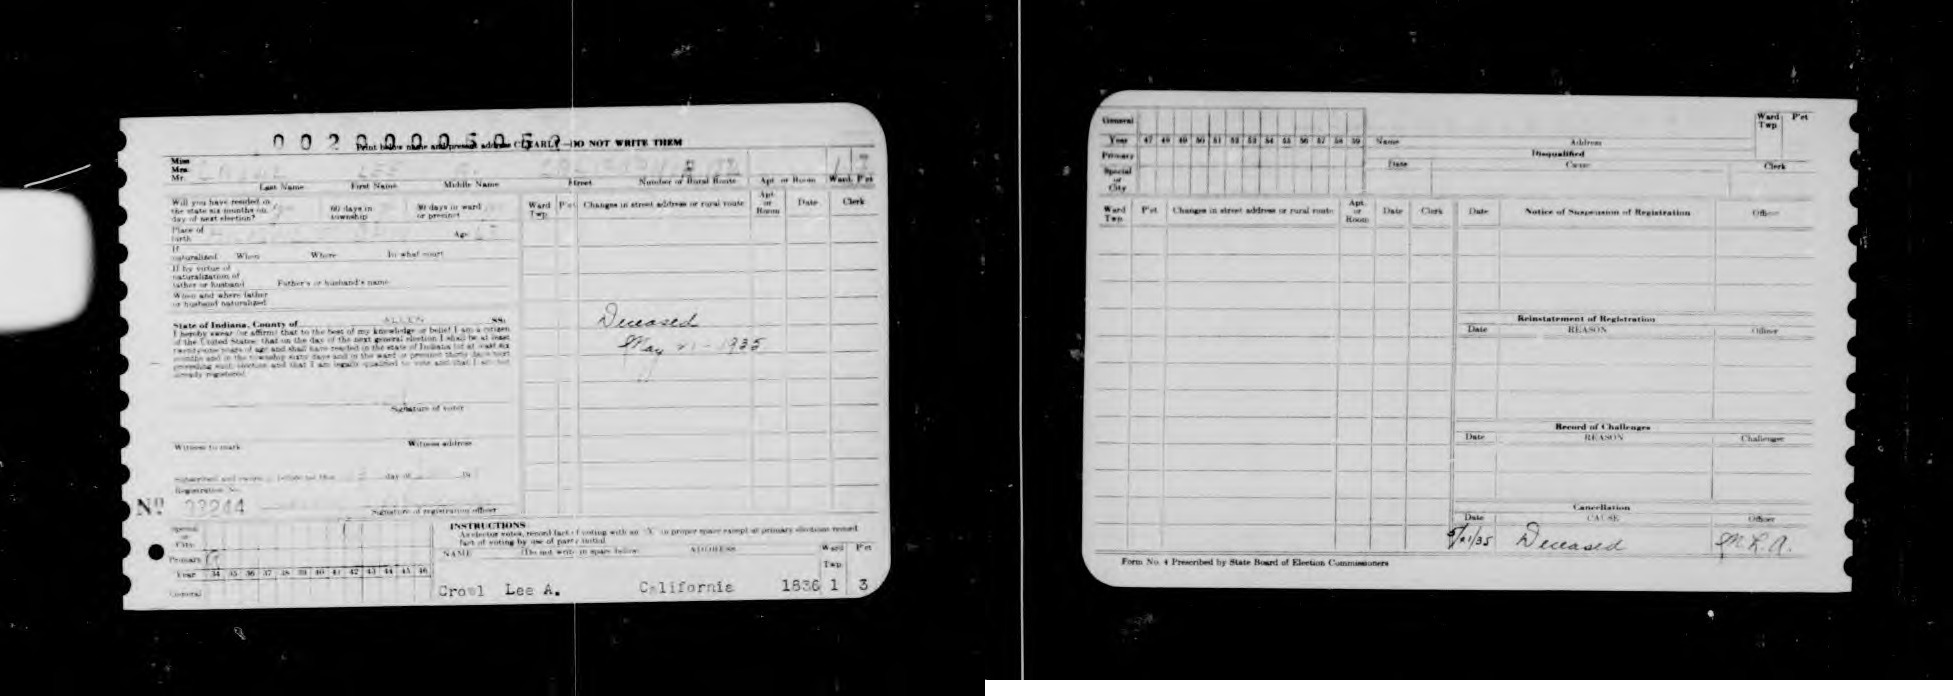 00200005052
Print below name and present address CLEARLY—DO NOT WRITE THEM
Miss
Mrs.
Mr.
Last Name First Name Middle Name Street Number or Rural Route Apt. or Room Ward P'ct
Will you have resided in
the state six months on 60 days in 30 days in ward
day of next election? township or precinct
Place of
birth Age
If
naturalized When Where In what court
If by virtue of
naturalization of
father or husband Father's or husband's name
When and where father
or husband naturalized
State of Indiana, County of ALLEN SS:
I hereby swear (or affirm) that to the best of my knowledge or belief I am a citizen
of the United States; that on the day of the next general election I shall be at least
twenty-one years of age and shall have resided in the state of Indiana for at least six
months and in the township sixty days and in the ward or precinct thirty days next
preceding such election and that I am legally qualified to vote and that I am not
already registered.
Signature of voter
Witness to mark Witness address
Subscribed and sworn before me this day of 19
Registration No.
No 23244
Signature of registration officer
Ward Twp. P'ct Changes in street address or rural route Apt. or Room Date Clerk
Deceased
May 21-1935
Special
or
City
Primary
Year 34 35 36 37 38 39 40 41 42 43 44 45 46
General
INSTRUCTIONS
As elector votes, record fact of voting with an "X" in proper space except at primary elections record
fact of voting by use of party initial.
NAME (Do not write in space below) ADDRESS Ward Twp. P'ct
Crowl Lee A. California 1836 1 3
General
Year 47 48 49 50 51 52 53 54 55 56 57 58 59
Primary
Special
or
City
Name Address Ward Twp. P'ct
Disqualified
Date Cause Clerk
Ward Twp. P'ct Changes in street address or rural route Apt. or Room Date Clerk
Date Notice of Suspension of Registration Officer
Reinstatement of Registration
Date REASON Officer
Record of Challenges
Date REASON Challenger
Cancellation
Date CAUSE Officer
5/21/35 Deceased M.R.A.
Form No. 4 Prescribed by State Board of Election Commissioners